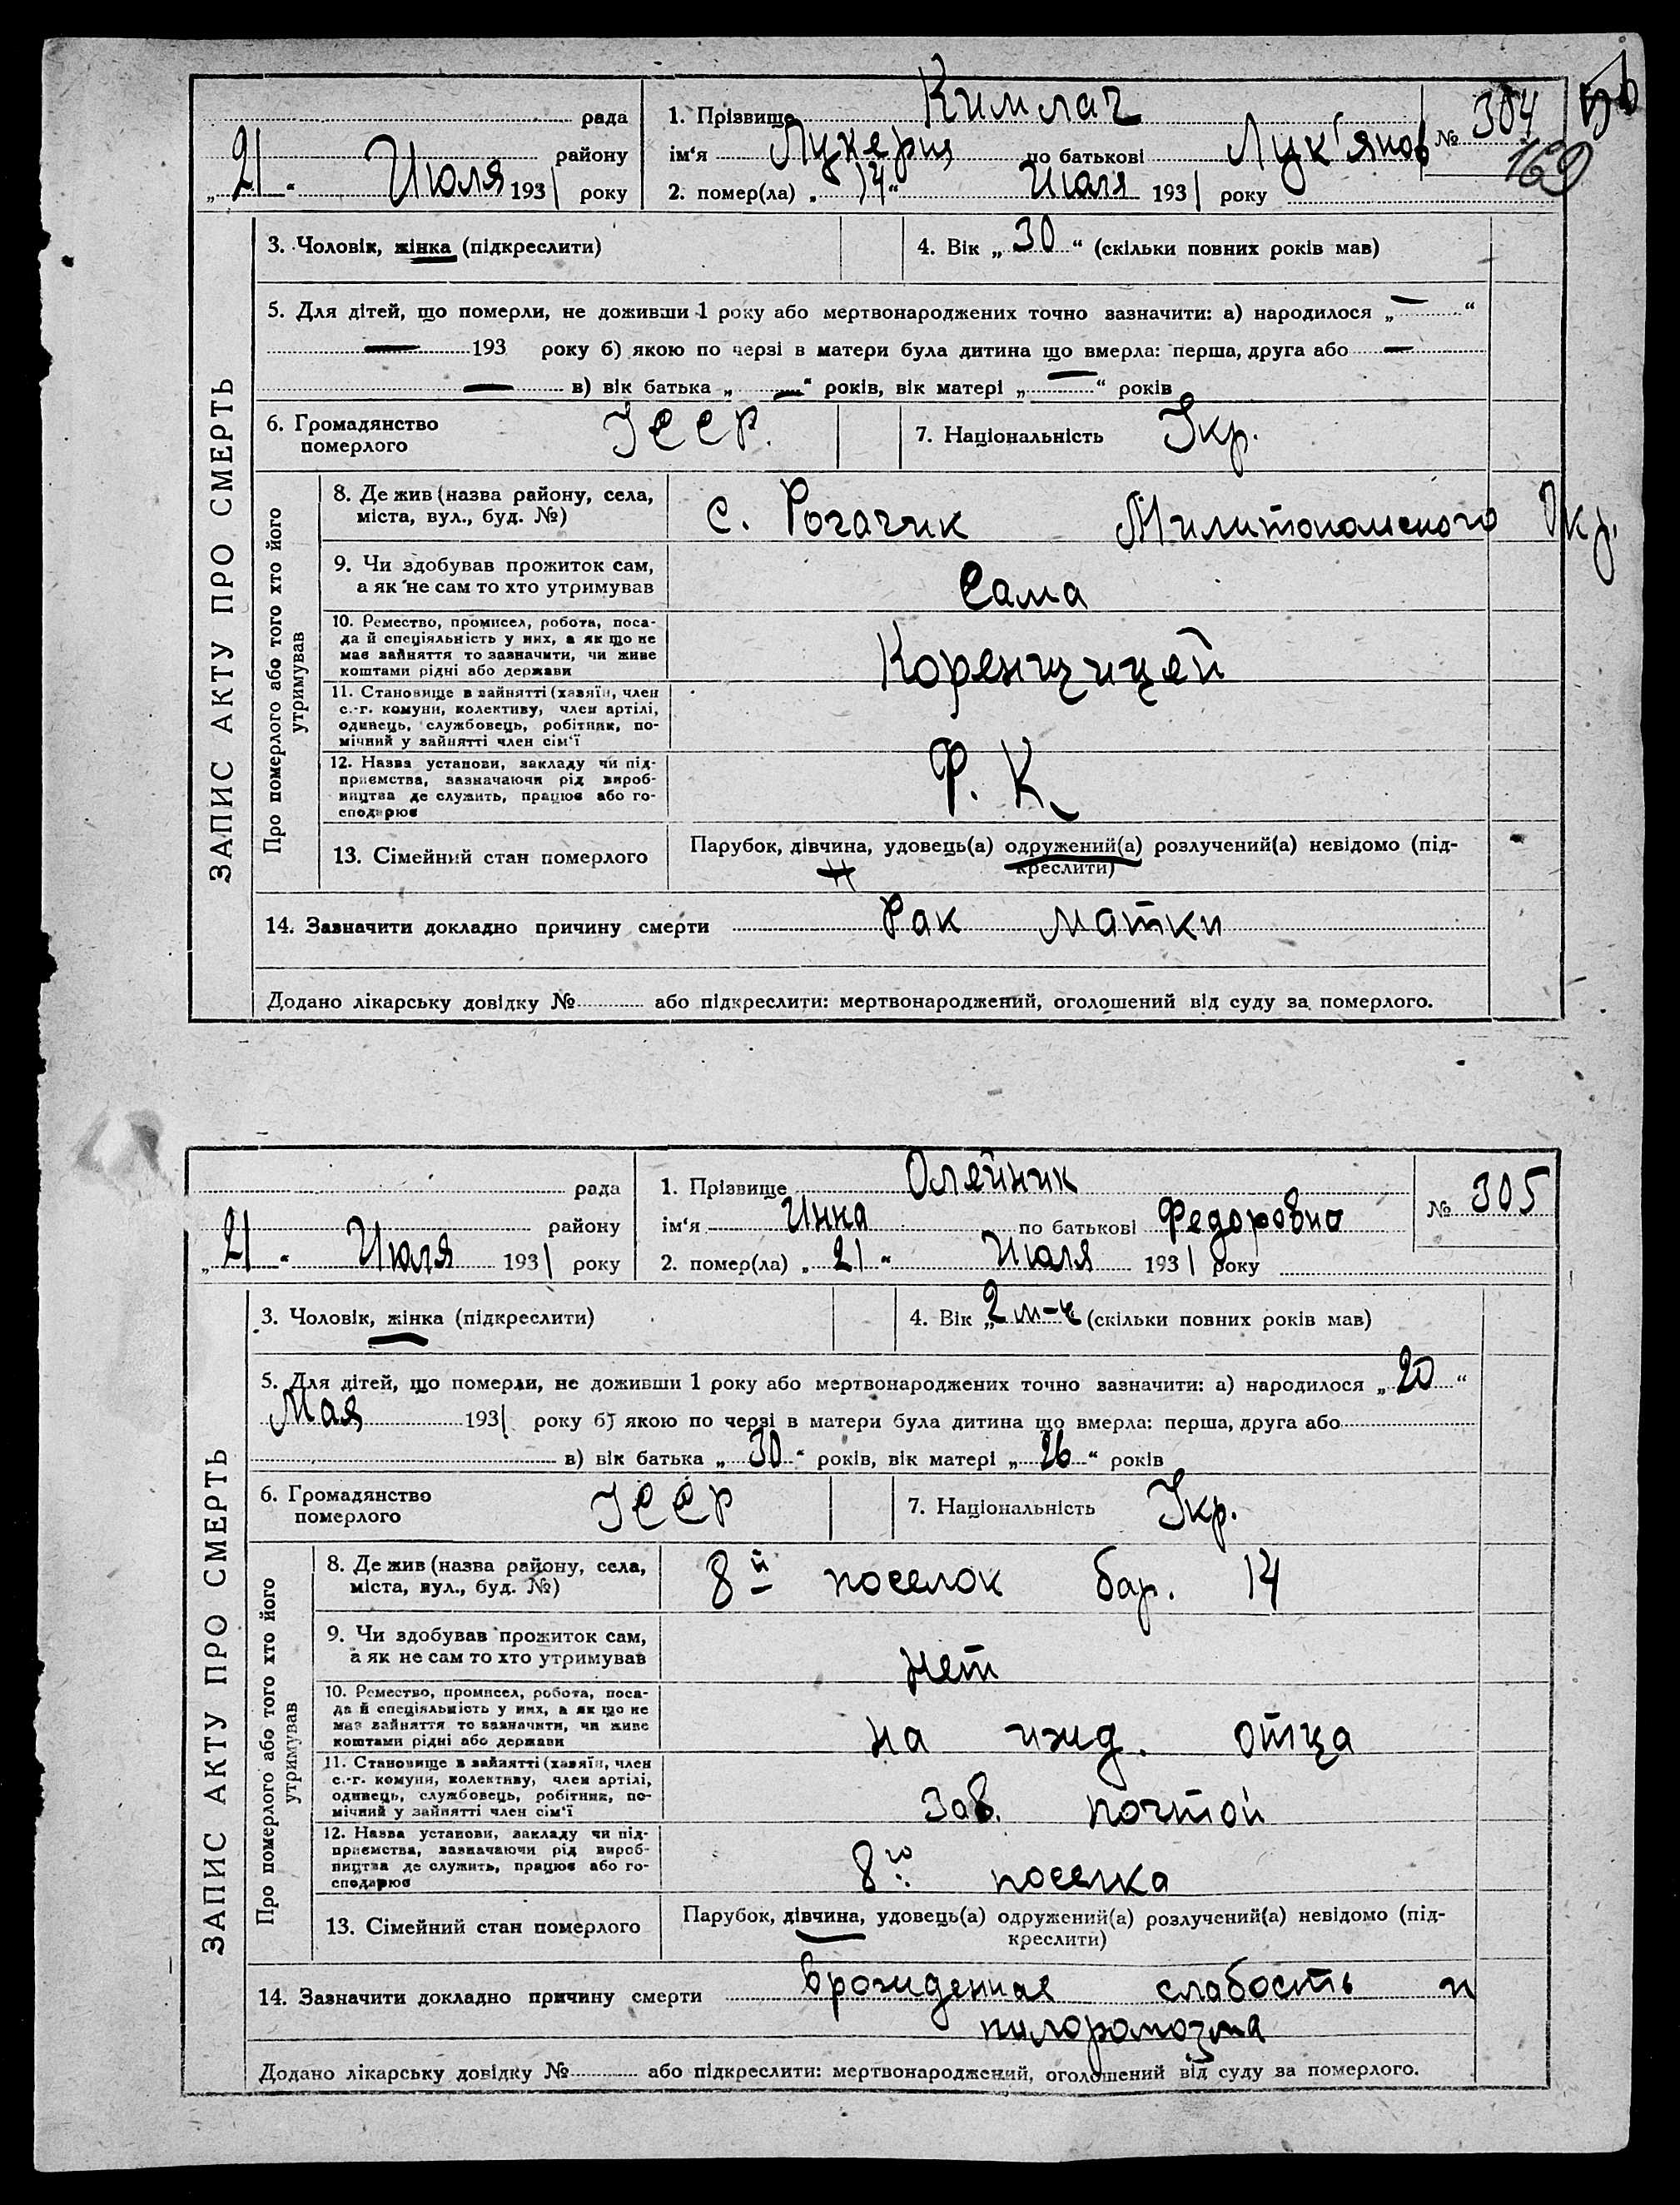 рада
району
„ 21 “ Июля 1931 року
1. Прізвище Кимлач
ім‘я Лукерия по батькові Лук'янов
2. помер(ла) „ 14 “ Июля 1931 року
№ 304
169
ЗАПИС АКТУ ПРО СМЕРТЬ
3. Чоловік, жінка (підкреслити)
4. Вік „ 30 “ (скільки повних років мав)
5. Для дітей, що померли, не доживши 1 року або мертвонароджених точно зазначити: а) народилося „ — “
— 193 року б) якою по черзі в матери була дитина що вмерла: перша, друга або —
— в) вік батька „ — “ років, вік матері „ — “ років
6. Громадянство померлого УССР.
7. Національність Укр.
Про померлого або того хто його утримував
8. Де жив (назва району, села,
міста, вул., буд. №)
с. Рогачик Милитопольского Окр.
9. Чи здобував прожиток сам,
а як не сам то хто утримував
Сама
10. Ремество, промисел, робота, поса-
да й спеціяльність у них, а як що не
має зайняття то зазначити, чи живе
коштами рідні або держави
Коренщицей
11. Становище в зайнятті (хазяїн, член
с.-г. комуни, колективу, член артілі,
одинець, службовець, робітник, по-
мічний у зайнятті член сім‘ї
12. Назва установи, закладу чи під-
приємства, зазначаючи рід вироб-
ництва де служить, працює або го-
сподарює
Р. К.
13. Сімейний стан померлого
Парубок, дівчина, удовець(а) одружений(а) розлучений(а) невідомо (під-
креслити)
14. Зазначити докладно причину смерти Рак матки
Додано лікарську довідку № або підкреслити: мертвонароджений, оголошений від суду за померлого.
рада
району
„ 21 “ Июля 1931 року
1. Прізвище Олейник
ім‘я Инна по батькові Федоровна
2. помер(ла) „ 21 “ Июля 1931 року
№ 305
ЗАПИС АКТУ ПРО СМЕРТЬ
3. Чоловік, жінка (підкреслити)
4. Вік „ 2 м-ц (скільки повних років мав)
5. Для дітей, що померли, не доживши 1 року або мертвонароджених точно зазначити: а) народилося „ 20 “
Мая 1931 року б) якою по черзі в матери була дитина що вмерла: перша, друга або
в) вік батька „ 30 “ років, вік матері „ 26 “ років
6. Громадянство померлого УССР
7. Національність Укр.
Про померлого або того хто його утримував
8. Де жив (назва району, села,
міста, вул., буд. №)
8й поселок бар. 14
9. Чи здобував прожиток сам,
а як не сам то хто утримував
нет
10. Ремество, промисел, робота, поса-
да й спеціяльність у них, а як що не
має зайняття то зазначити, чи живе
коштами рідні або держави
на ижд. отца
11. Становище в зайнятті (хазяїн, член
с.-г. комуни, колективу, член артілі,
одинець, службовець, робітник, по-
мічний у зайнятті член сім‘ї
зав. почтой
12. Назва установи, закладу чи під-
приємства, зазначаючи рід вироб-
ництва де служить, працює або го-
сподарює
8го поселка
13. Сімейний стан померлого
Парубок, дівчина, удовець(а) одружений(а) розлучений(а) невідомо (під-
креслити)
14. Зазначити докладно причину смерти врожденная слабость и
Додано лікарську довідку № або підкреслити: мертвонароджений, оголошений від суду за померлого.